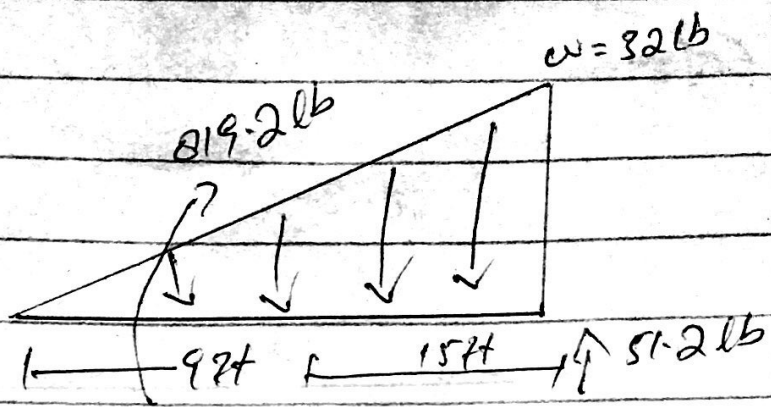 w = 32 lb
819.2 lb
9ft
15ft
51.2 lb